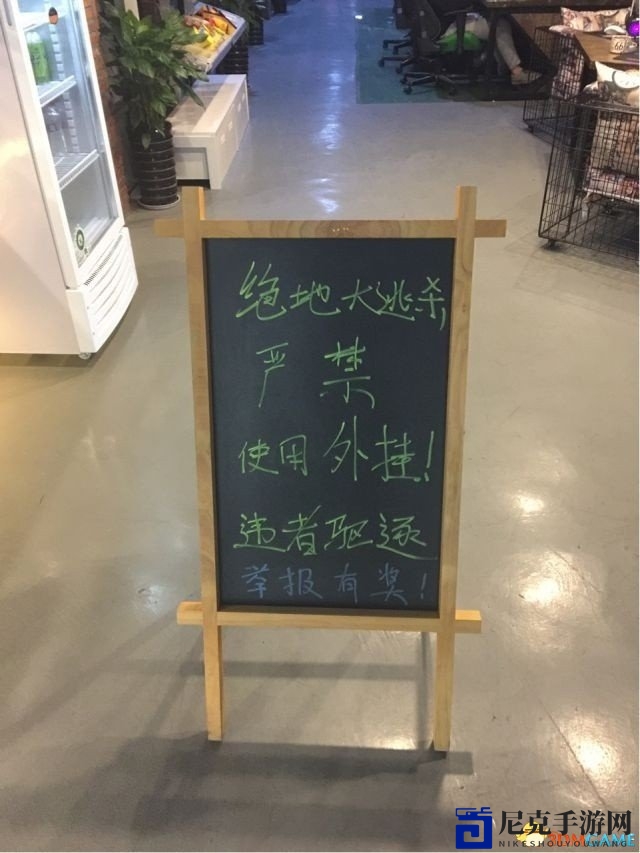 绝地大逃杀,
严禁
使用外挂!
违者驱逐
举报有奖!
尼克手游网
NIKESHOUYOUWANG
3DMGAME